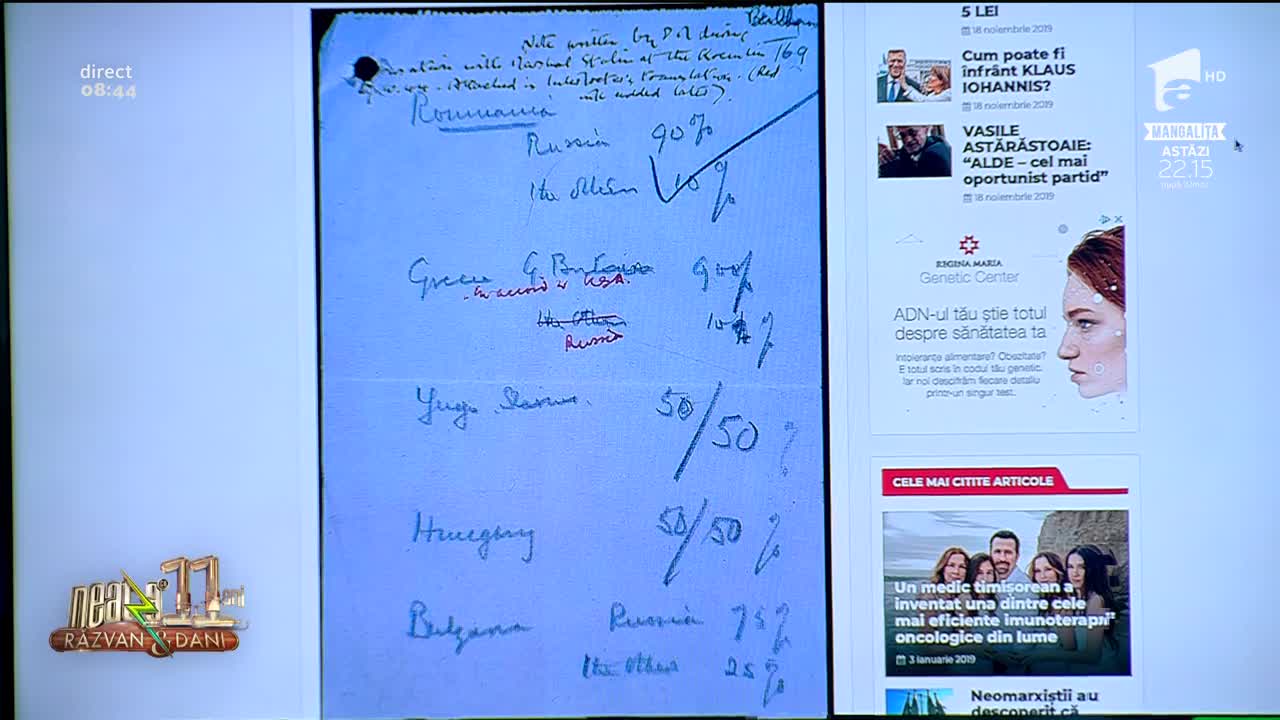 direct
08:44
HD
MANGALIȚA
ASTĂZI
22.15
neatza
11 ani
RĂZVAN & DANI
Note written by P.M during
with Marshal Stalin at the Kremlin
169
Attached is Interpreter's translation. (Red
ink added later).
Roumania
Russia 90%
the others 10%
Greece G. Britain 90%
in accord w USA.
the others 10%
Russia
Yugo Slavia 50/50 %
Hungary 50/50 %
Bulgaria Russia 75%
the others 25%
5 LEI
18 noiembrie 2019
Cum poate fi
înfrânt KLAUS
IOHANNIS?
18 noiembrie 2019
VASILE
ASTĂRĂSTOAIE:
“ALDE – cel mai
oportunist partid”
18 noiembrie 2019
REGINA MARIA
Genetic Center
ADN-ul tău știe totul
despre sănătatea ta
Intoleranțe alimentare? Obezitate?
E totul scris în codul tău genetic.
Iar noi descifrăm fiecare detaliu
printr-un singur test.
CELE MAI CITITE ARTICOLE
Un medic timișorean a
inventat una dintre cele
mai eficiente imunoterapii
oncologice din lume
3 ianuarie 2019
Neomarxiștii au
descoperit că